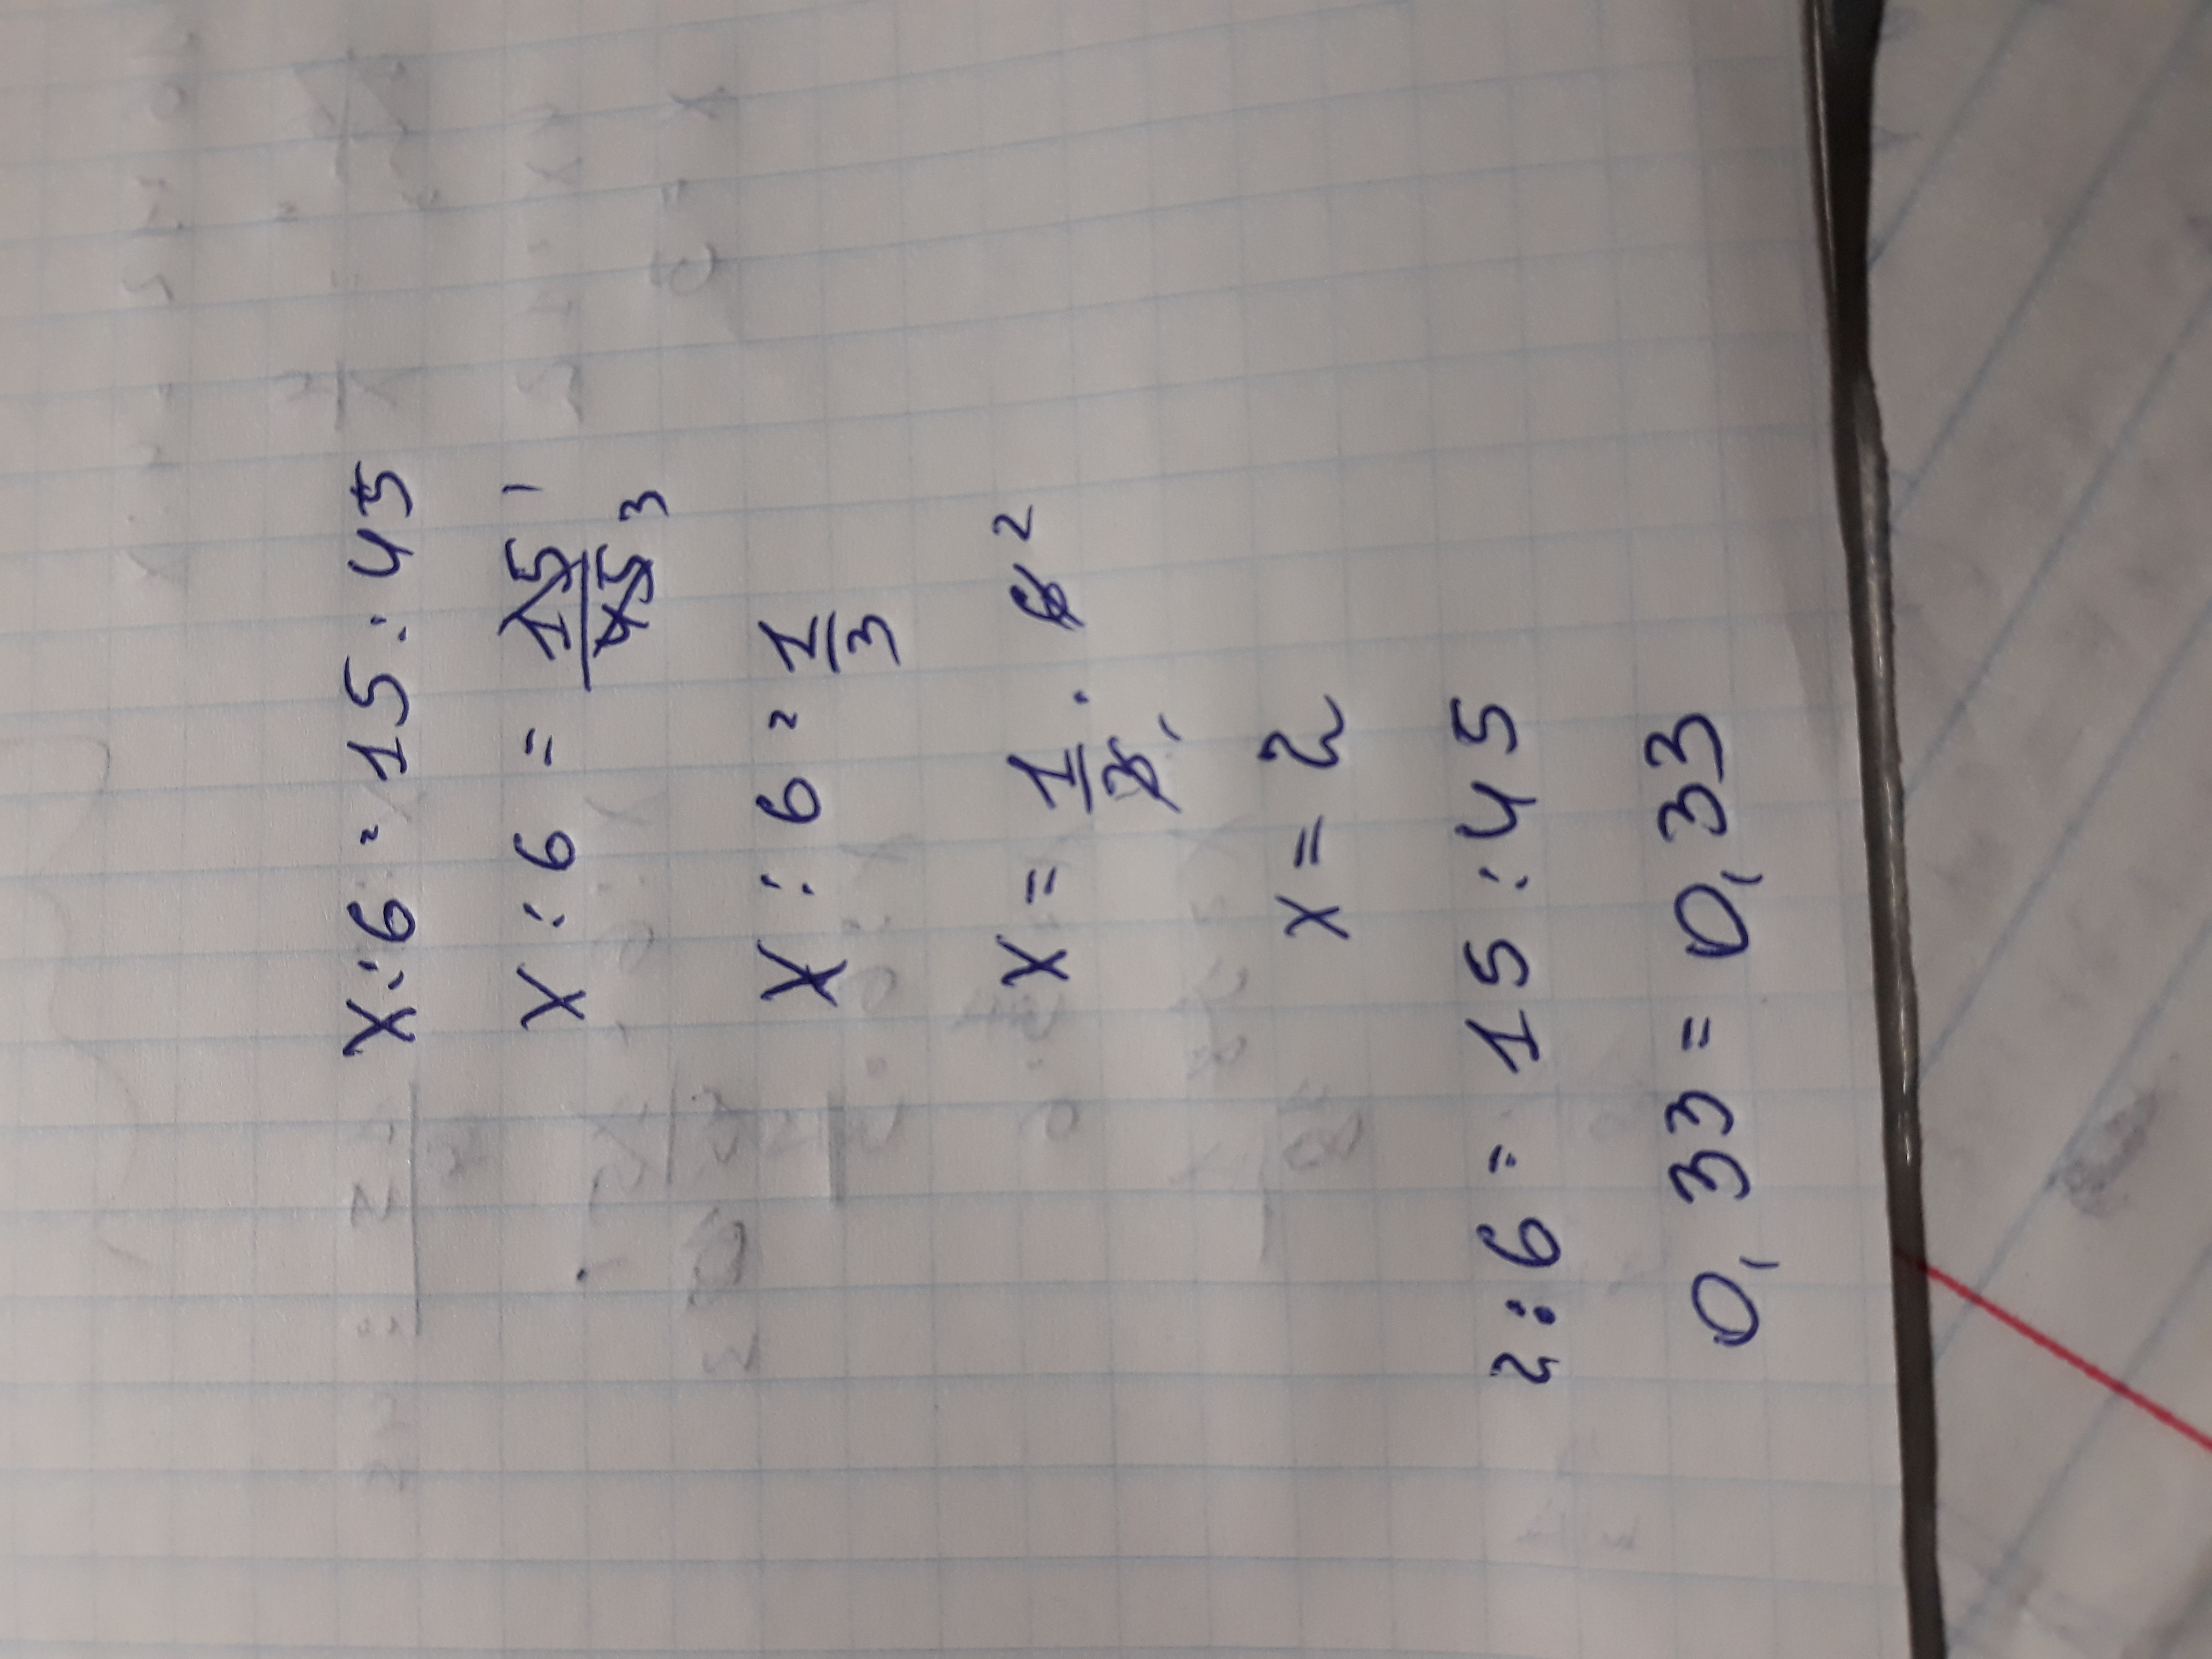 x:6=15:45
x:6=15/45 1 3
x:6=1/3
x=1/3 1 · 6 2
x=2
2:6=15:45
0,33=0,33